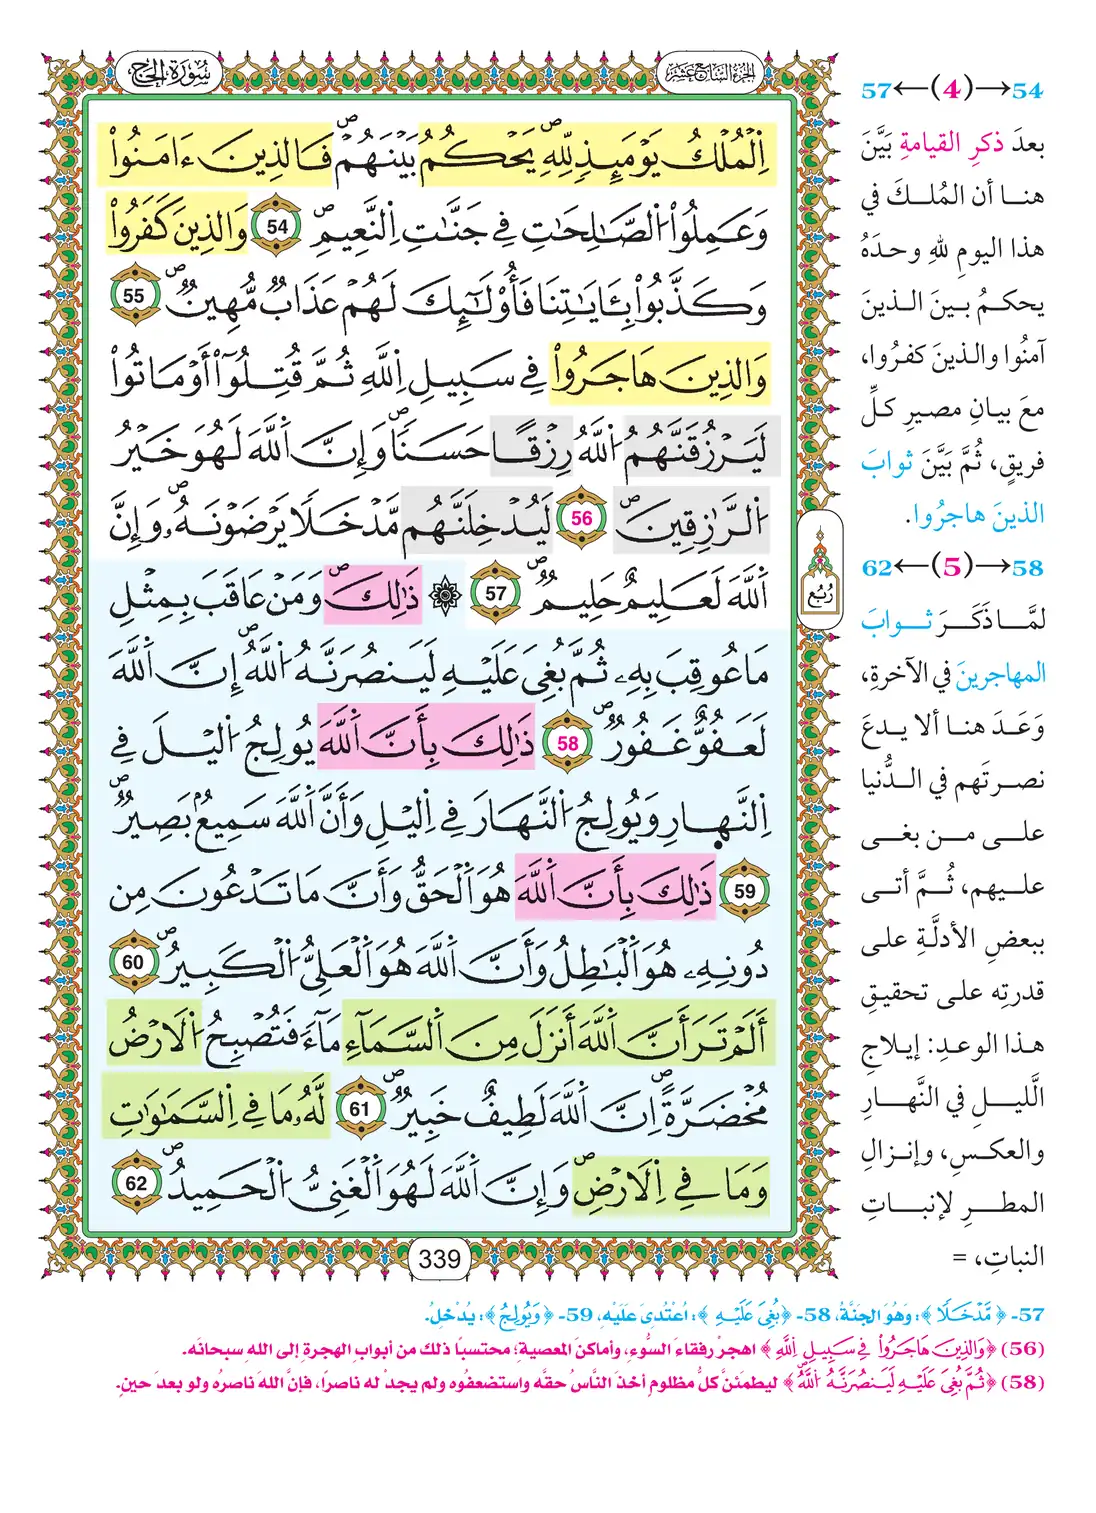 سُورَةُ الحَجِّ
الجُزءُ السَّابِعَ عَشَرَ
اِ۬لْمُلْكُ يَوْمَئِذٍ لِّلهِۖ يَحْكُمُ بَيْنَهُمْۖ فَالذِينَ ءَامَنُواْ
وَعَمِلُواْ اُ۬لصَّٰلِحَٰتِ فِے جَنَّٰتِ اِ۬لنَّعِيمِۖ 54 وَالذِينَ كَفَرُواْ
وَكَذَّبُواْ بِـَٔايَٰتِنَا فَأُوْلَٰٓئِكَ لَهُمْ عَذَابٞ مُّهِينٞۖ 55
وَالذِينَ هَاجَرُواْ فِے سَبِيلِ اِ۬للَّهِ ثُمَّ قُتِلُوٓاْ أَوْ مَاتُواْ
لَيَرْزُقَنَّهُمُ اُ۬للَّهُ رِزْقًا حَسَنٗاۖ وَإِنَّ اَ۬للَّهَ لَهُوَ خَيْرُ
اُ۬لرَّٰزِقِينَۖ 56 لَيُدْخِلَنَّهُم مَّدْخَلٗا يَرْضَوْنَهُۥۖ وَإِنَّ
اَ۬للَّهَ لَعَلِيمٌ حَلِيمٞۖ 57 ۞ ذَٰلِكَۖ وَمَنْ عَاقَبَ بِمِثْلِ
مَا عُوقِبَ بِهِۦ ثُمَّ بُغِيَ عَلَيْهِ لَيَنصُرَنَّهُ اُ۬للَّهُۖ إِنَّ اَ۬للَّهَ
لَعَفُوٌّ غَفُورٞۖ 58 ذَٰلِكَ بِأَنَّ اَ۬للَّهَ يُولِجُ اُ۬ليْلَ فِے
اِ۬لنَّهارِ وَيُولِجُ اُ۬لنَّهَارَ فِے اِ۬ليْلِ وَأَنَّ اَ۬للَّهَ سَمِيعُۢ بَصِيرٞۖ
59 ذَٰلِكَ بِأَنَّ اَ۬للَّهَ هُوَ اَ۬لْحَقُّ وَأَنَّ مَا تَدْعُونَ مِن
دُونِهِۦ هُوَ اَ۬لْبَٰطِلُ وَأَنَّ اَ۬للَّهَ هُوَ اَ۬لْعَلِيُّ اُ۬لْكَبِيرُۖ 60
أَلَمْ تَرَ أَنَّ اَ۬للَّهَ أَنزَلَ مِنَ اَ۬لسَّمَآءِ مَآءٗ فَتُصْبِحُ اُ۬لَارْضُ
مُخْضَرَّةًۖ اِنَّ اَ۬للَّهَ لَطِيفٌ خَبِيرٞۖ 61 لَّهُۥ مَا فِے اِ۬لسَّمَٰوَٰتِ
وَمَا فِے اِ۬لَارْضِۖ وَإِنَّ اَ۬للَّهَ لَهُوَ اَ۬لْغَنِيُّ اُ۬لْحَمِيدُۖ 62
رُبُع
339
54→(4)←57
بعدَ ذكرِ القيامةِ بَيَّنَ
هنا أن المُلكَ في
هذا اليومِ للهِ وحدَهُ
يحكمُ بينَ الذينَ
آمنُوا والذينَ كفرُوا،
معَ بيانِ مصيرِ كلِّ
فريقٍ، ثُمَّ بَيَّنَ ثوابَ
الذينَ هاجرُوا.
58→(5)←62
لمَّا ذَكَرَ ثوابَ
المهاجرينَ في الآخرةِ،
وَعَدَ هنا ألا يدعَ
نصرتَهم في الدُّنيا
على من بغى
عليهم، ثُمَّ أتى
ببعضِ الأدلَّةِ على
قدرتِه على تحقيقِ
هذا الوعدِ: إيلاجِ
الَّليلِ في النَّهارِ
والعكسِ، وإنزالِ
المطرِ لإنباتِ
النباتِ، =
57- ﴿مَّدْخَلٗا﴾: وَهُوَ الجَنَّةُ، 58- ﴿بُغِيَ عَلَيْهِ﴾: اعْتُدِيَ عَلَيْهِ، 59- ﴿وَيُولِجُ﴾: يُدْخِلُ.
(56) ﴿وَالذِينَ هَاجَرُواْ فِے سَبِيلِ اِ۬للَّهِ﴾ اهجرْ رفقاءَ السُّوءِ، وأماكنَ المعصيةِ؛ محتسبًا ذلك من أبوابِ الهجرةِ إلى اللهِ سبحانَه.
(58) ﴿ثُمَّ بُغِيَ عَلَيْهِ لَيَنصُرَنَّهُ اُ۬للَّهُ﴾ ليطمئنَّ كلُّ مظلومٍ أخذَ النَّاسُ حقَّه واستضعفُوه ولم يجدْ له ناصرًا، فإنَّ اللهَ ناصرُه ولو بعدَ حينٍ.